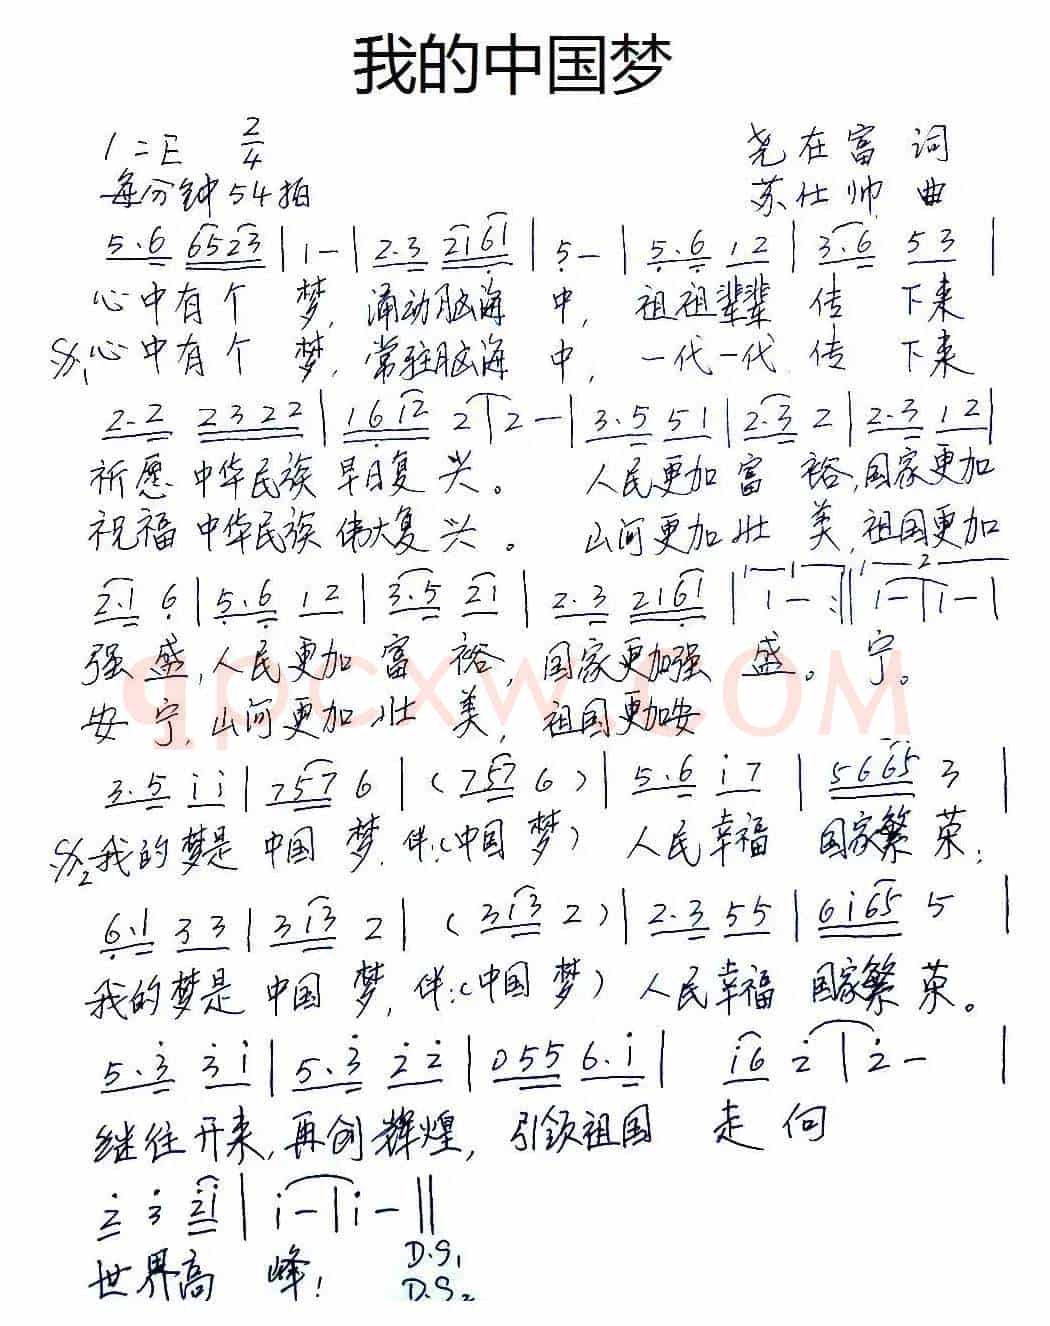 我的中国梦
1=E 2/4
尧在富 词
每分钟54拍
苏仕帅 曲
5.6 6523 | 1 - | 2.3 2161 | 5 - | 5.6 12 | 3.6 53 |
心中有个 梦, 涌动脑海 中, 祖祖辈辈 传 下来
𝄋1 心中有个 梦, 常驻脑海 中, 一代一代 传 下来
2.2 2322 | 1612 2 | 2 - | 3.5 51 | 2.3 2 | 2.3 12 |
祈愿 中华民族 早日复 兴。 人民更加 富 裕,国家更加
祝福 中华民族 伟大复 兴。 山河更加 壮 美,祖国更加
2.1 6 | 5.6 12 | 3.5 21 | 2.3 2161 | 1 1 - :|| 2 1 - | 1 - |
强 盛,人民更加 富 裕,国家更加强 盛。 宁。
安 宁,山河更加 壮 美,祖国更加安
qpcxw.COM
3.5 i i | 757 6 | (757 6) | 5.6 i7 | 5665 3 |
𝄋2 我的梦是 中国 梦,伴:(中国 梦) 人民幸福 国家繁 荣;
6.1 33 | 3i3 2 | (3i3 2) | 2.3 55 | 6i65 5 |
我的梦是 中国 梦,伴:(中国 梦) 人民幸福 国家繁 荣。
5.3 3i | 5.3 22 | 055 6.i | i6 2 | 2 - |
继往开来,再创辉煌, 引领祖国 走 向
2 3 2i | i - | i - ||
世界高 峰! D.S1
D.S2